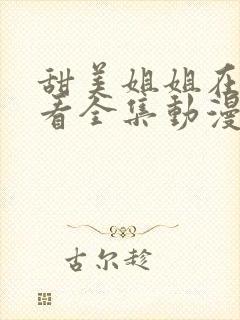 甜美姐姐在
看全集動漫
古尔趁